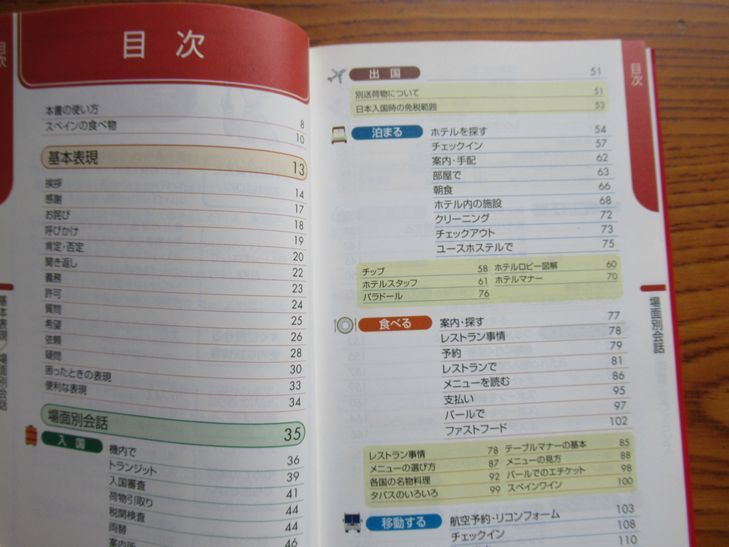 目次
本書の使い方 8
スペインの食べ物 10
基本表現 13
挨拶 14
感謝 17
お詫び 18
呼びかけ 19
肯定・否定 20
聞き返し 22
義務 23
許可 24
質問 25
希望 26
依頼 28
疑問 30
困ったときの表現 33
便利な表現 34
場面別会話 35
入国 機内で 36
トランジット 39
入国審査 41
荷物引取り 44
税関検査 44
両替 46
案内所
目次
基本表現/場面別会話
出国 51
別送荷物について 51
日本入国時の免税範囲 53
泊まる ホテルを探す 54
チェックイン 57
案内・手配 62
部屋で 63
朝食 66
ホテル内の施設 68
クリーニング 72
チェックアウト 73
ユースホステルで 75
チップ 58 ホテルロビー図解 60
ホテルスタッフ 61 ホテルマナー 70
パラドール 76
食べる 案内・探す 77
レストラン事情 78
予約 79
レストランで 81
メニューを読む 86
支払い 95
バールで 97
ファストフード 102
レストラン事情 78 テーブルマナーの基本 85
メニューの選び方 87 メニューの見方 88
各国の名物料理 92 バールでのエチケット 98
タパスのいろいろ 99 スペインワイン 100
移動する 航空予約・リコンフォーム 103
チェックイン 108
110
目次
場面別会話